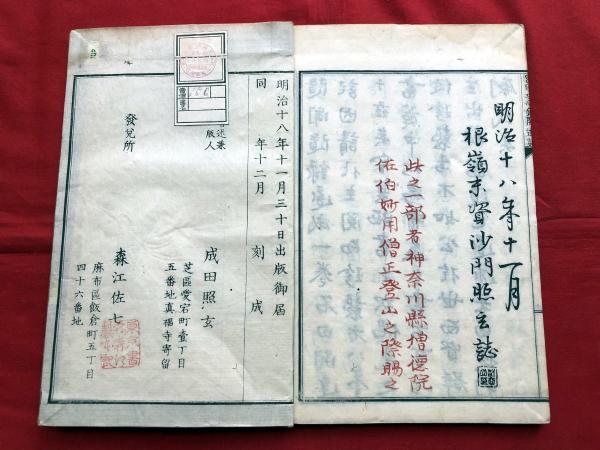 明治十八年十一月
根嶺末資沙門照玄誌
此之一部者神奈川縣増德院
佐伯妙用僧正登山之際賜之
明治十八年十一月三十日出版御届
同 年十二月 刻成
述兼
版人
成田照玄
芝區愛宕町壹丁目
五番地真福寺寄留
發兌所
森江佐七
麻布區飯倉町五丁目
四十六番地